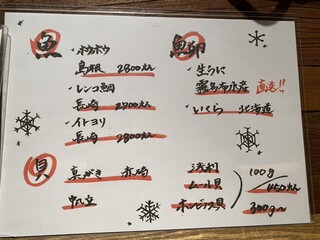 魚
・ホウボウ
島根 2800えん
・レンコ鯛
長崎 2700えん
・イトヨリ
長崎 2800えん
貝
真がき 赤崎
帆立
魚卵
・生うに
霧多布水産 直送!!
・いくら 北海道
浅利
ムール貝
ホンビノス貝
100g
/450えん
300g〜